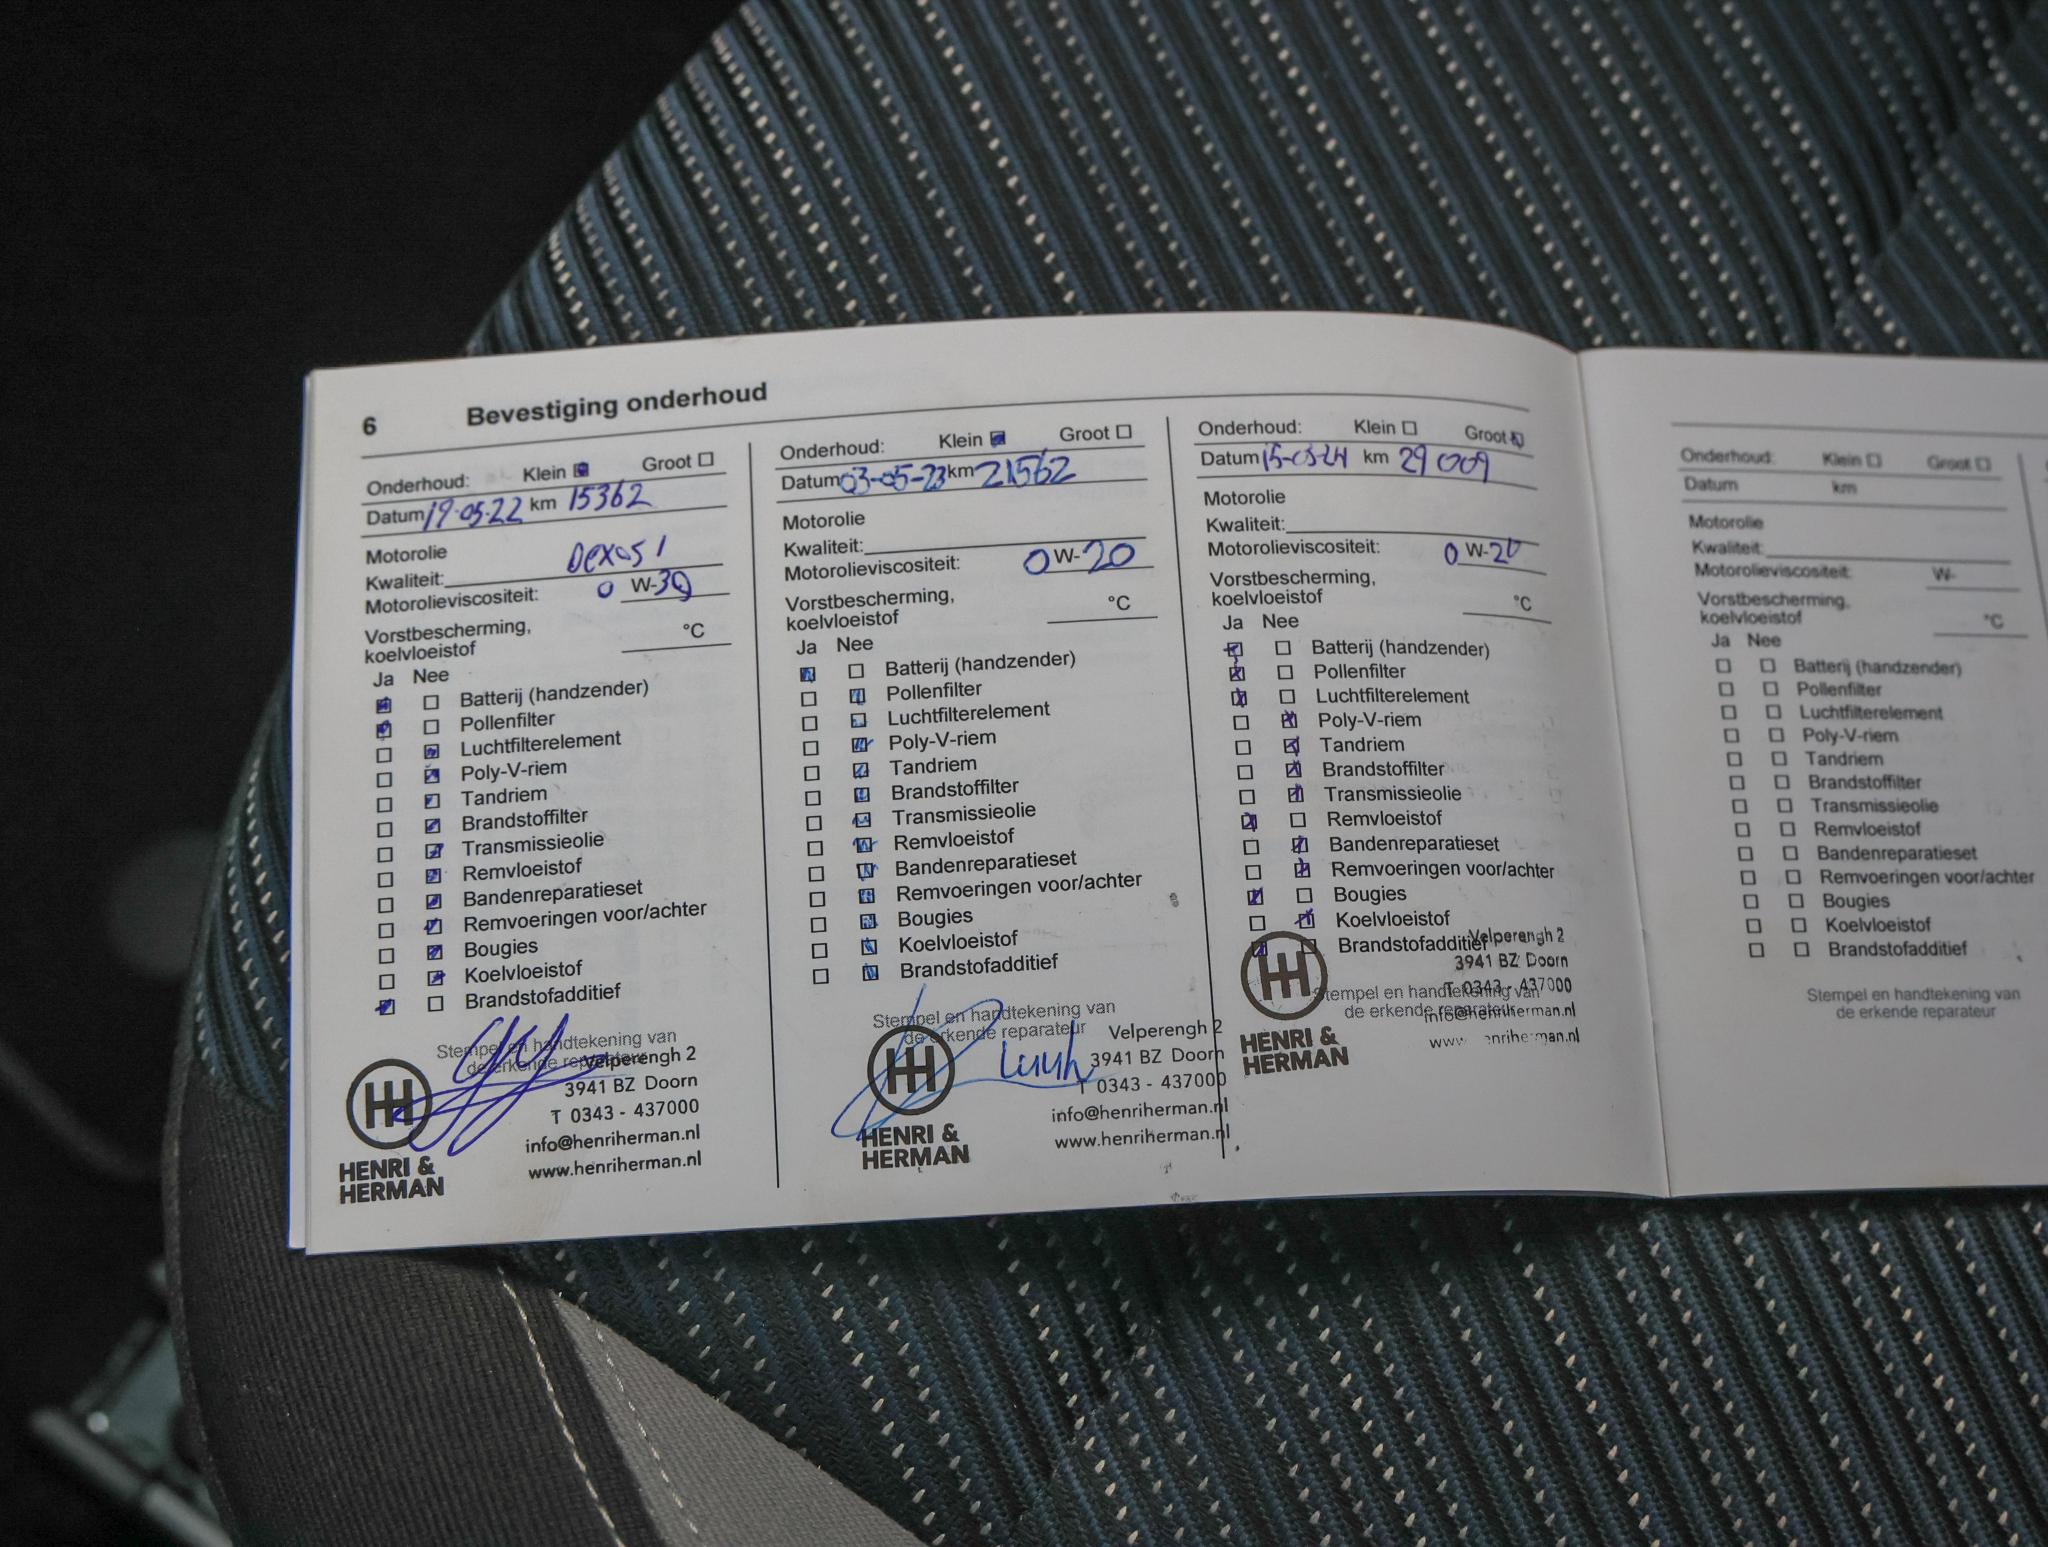 6 Bevestiging onderhoud
Onderhoud: Klein Groot
Datum 19-05-22 km 15362
Motorolie
Kwaliteit: Dexos 1
Motorolieviscositeit: 0 W-30
Vorstbescherming,
koelvloeistof °C
Ja Nee
Batterij (handzender)
Pollenfilter
Luchtfilterelement
Poly-V-riem
Tandriem
Brandstoffilter
Transmissieolie
Remvloeistof
Bandenreparatieset
Remvoeringen voor/achter
Bougies
Koelvloeistof
Brandstofadditief
Stempel en handtekening van
de erkende reparateur
Velperengh 2
3941 BZ Doorn
T 0343 - 437000
info@henriherman.nl
www.henriherman.nl
HENRI &
HERMAN
Onderhoud: Klein Groot
Datum 03-05-23 km 21562
Motorolie
Kwaliteit:
Motorolieviscositeit: 0 W-20
Vorstbescherming,
koelvloeistof °C
Ja Nee
Batterij (handzender)
Pollenfilter
Luchtfilterelement
Poly-V-riem
Tandriem
Brandstoffilter
Transmissieolie
Remvloeistof
Bandenreparatieset
Remvoeringen voor/achter
Bougies
Koelvloeistof
Brandstofadditief
Stempel en handtekening van
de erkende reparateur
Velperengh 2
3941 BZ Doorn
T 0343 - 437000
info@henriherman.nl
www.henriherman.nl
HENRI &
HERMAN
Onderhoud: Klein Groot
Datum 15-05-24 km 29009
Motorolie
Kwaliteit:
Motorolieviscositeit: 0 W-20
Vorstbescherming,
koelvloeistof °C
Ja Nee
Batterij (handzender)
Pollenfilter
Luchtfilterelement
Poly-V-riem
Tandriem
Brandstoffilter
Transmissieolie
Remvloeistof
Bandenreparatieset
Remvoeringen voor/achter
Bougies
Koelvloeistof
Brandstofadditief
Velperengh 2
3941 BZ Doorn
T 0343 - 437000
Stempel en handtekening van
de erkende reparateur
info@henriherman.nl
HENRI &
HERMAN
Onderhoud: Klein Groot
Datum km
Motorolie
Kwaliteit:
Motorolieviscositeit: W-
Vorstbescherming,
koelvloeistof °C
Ja Nee
Batterij (handzender)
Pollenfilter
Luchtfilterelement
Poly-V-riem
Tandriem
Brandstoffilter
Transmissieolie
Remvloeistof
Bandenreparatieset
Remvoeringen voor/achter
Bougies
Koelvloeistof
Brandstofadditief
Stempel en handtekening van
de erkende reparateur